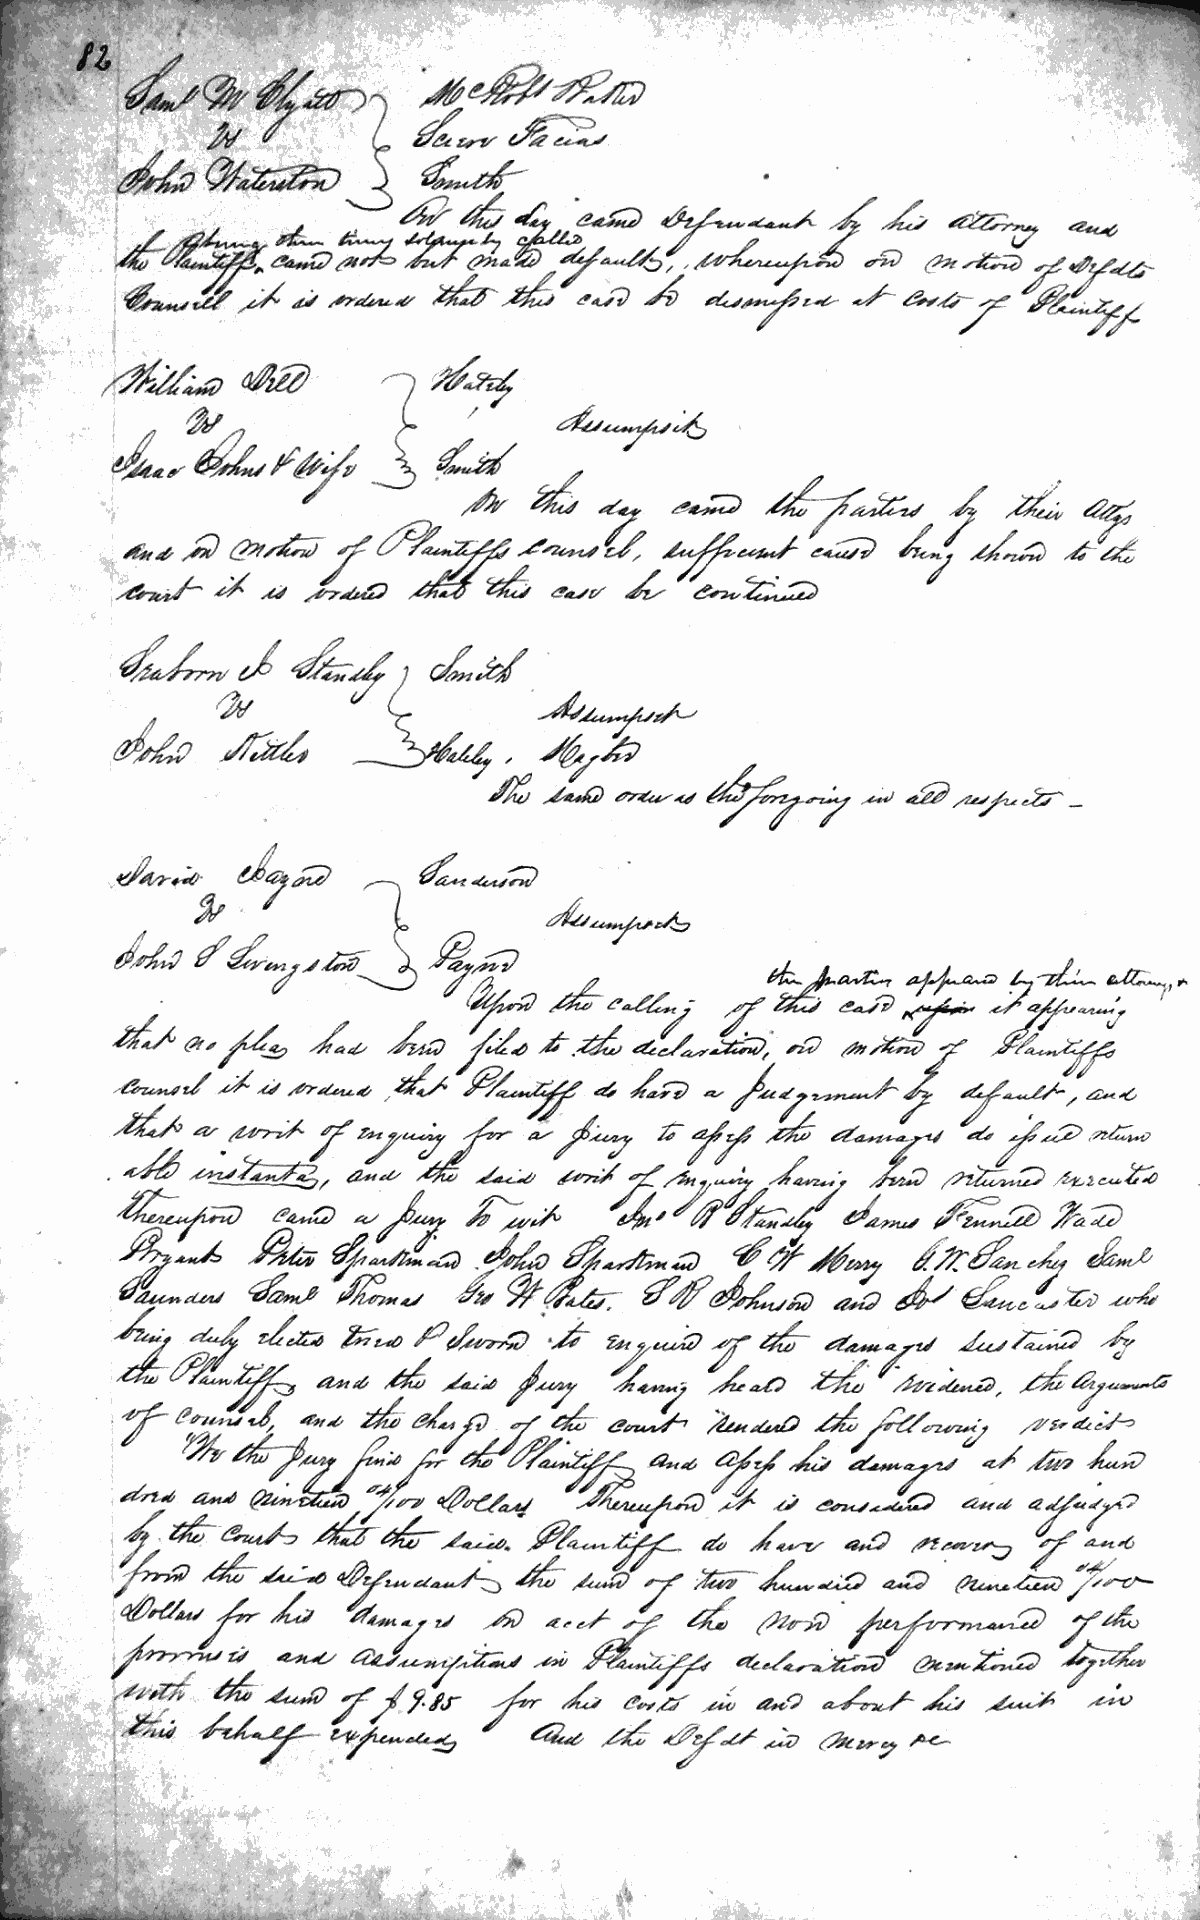 82
Saml M Clyatt McRobt & Patter
vs Sciere Facias
John Waterston Smith
On this day came Defendant by his attorney and
being three times solemnly called
the Plaintiff, came not but made default, whereupon on motion of Defdts
Counsell it is ordered that this case be dismissed at costs of Plaintiff
William Dell Hateley
vs Assumpsit
Isaac Johns & Wife Smith
On this day came the parties by their Attys
and on motion of Plaintiffs counsel, sufficient cause being shown to the
court it is ordered that this case be continued
Seaborn J Standley Smith
vs Assumpsit
John Nettles Hateley, Magbee
The same order as the foregoing in all respects -
David Sanderson
vs Assumpsit
John S Livingston Payne
the parties appeared by their attorneys, &
Upon the calling of this case upon it appearing
that no pleas had been filed to the declaration, on motion of Plaintiffs
counsel it is ordered that Plaintiff do have a Judgement by default, and
that a writ of enquiry for a Jury to assess the damages do issue return
able instanta, and the said writ of enquiry having been returned executed
thereupon came a Jury To wit Jno R Standley James Fennell Wade
Bryant Peter Sparkman John Sparkman C W Merry G. W. Sanchez Saml
Saunders Saml Thomas Geo W Bates. S R Johnson and Jos Lancaster who
being duly elected tried & Sworn to enquire of the damages sustained by
the Plaintiff, and the said Jury having heard the evidence, the arguments
of counsel, and the charge of the court rendered the following verdict
"We the Jury find for the Plaintiff and assess his damages at two hun
dred and nineteen 04/100 Dollars Thereupon it is considered and adjudged
by the Court that the said Plaintiff do have and recover of and
from the said Defendant the sum of two hundred and nineteen 04/100
Dollars for his damages on acct of the non performance of the
promises and assumptions in Plaintiffs declaration mentioned together
with the sum of $9.85 for his costs in and about his suit in
this behalf expended And the Defdt in mercy &c